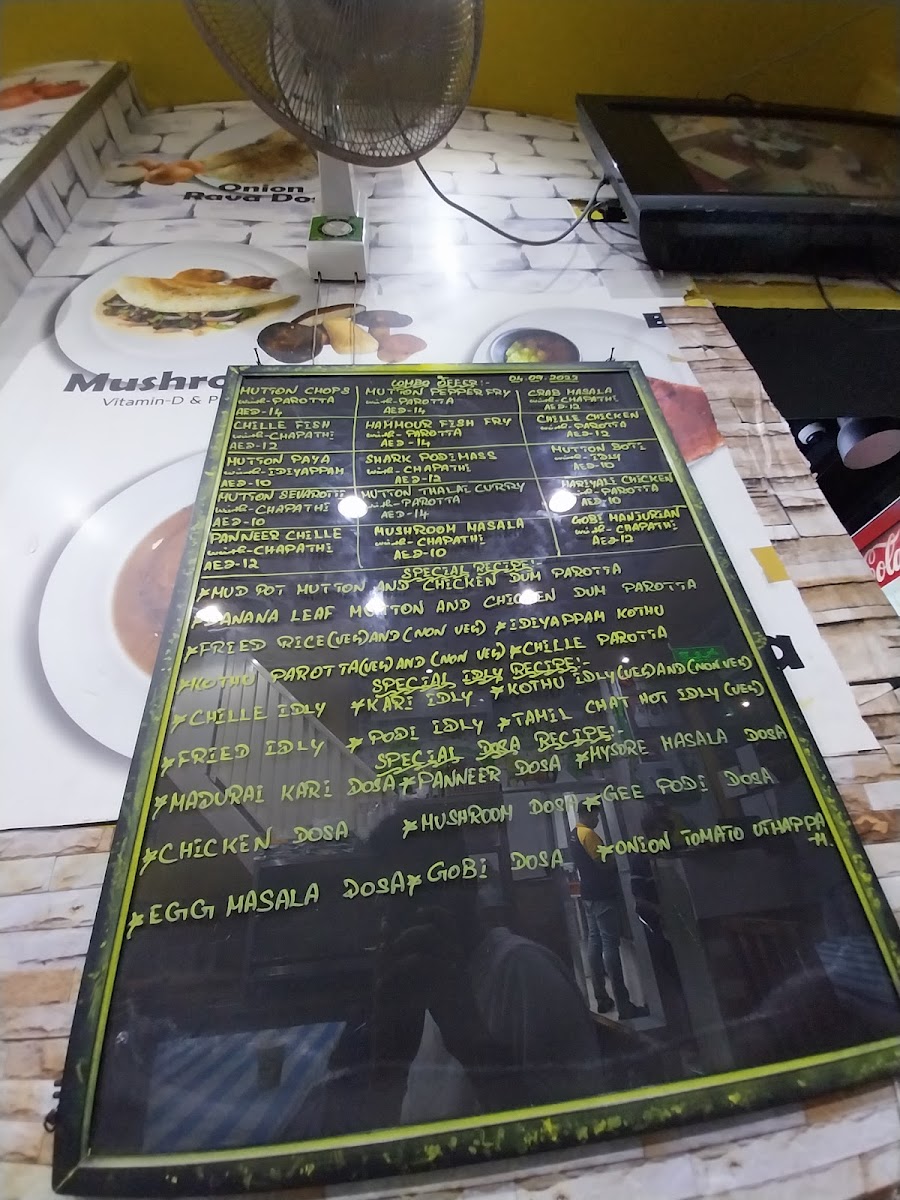 Onion
Rava Dos
Mushro
Vitamin-D & P
COMBO OFFER:- 04.09.2022
MUTTON CHOPS
with-PAROTTA
AED-14
MUTTON PEPPER FRY
with-PAROTTA
AED-14
CRAB MASALA
with-CHAPATHI
AED-12
CHILLE FISH
with-CHAPATHI
AED-12
HAMMOUR FISH FRY
with-PAROTTA
AED-14
CHILLE CHICKEN
with-PAROTTA
AED-12
MUTTON PAYA
with-IDIYAPPAM
AED-10
SHARK PODIMASS
with-CHAPATHI
AED-12
MUTTON BOTI
with-IDLY
AED-10
MUTTON SEVAROTTI
with-CHAPATHI
AED-10
MUTTON THALAI CURRY
with-PAROTTA
AED-14
HARIYALI CHICKEN
with-PAROTTA
AED-10
PANNEER CHILLE
with-CHAPATHI
AED-12
MUSHROOM MASALA
with-CHAPATHI
AED-10
GOBI MANJURIAN
with-CHAPATHI
AED-12
SPECIAL RECIPE:-
MUD POT MUTTON AND CHICKEN DUM PAROTTA
BANANA LEAF MUTTON AND CHICKEN DUM PAROTTA
FRIED RICE(VEG)AND(NON VEG) IDIYAPPAM KOTHU
KOTHU PAROTTA(VEG)AND(NON VEG) CHILLE PAROTTA
SPECIAL IDLY RECIPE:-
CHILLE IDLY KARI IDLY KOTHU IDLY(VEG)AND(NON VEG)
FRIED IDLY PODI IDLY TAMIL CHAT HOT IDLY(VEG)
SPECIAL DOSA RECIPE:-
MADURAI KARI DOSA PANNEER DOSA MYSORE MASALA DOSA
CHICKEN DOSA MUSHROOM DOSA GEE PODI DOSA
EGG MASALA DOSA GOBI DOSA ONION TOMATO UTHAPPA
-M.
Cola
a